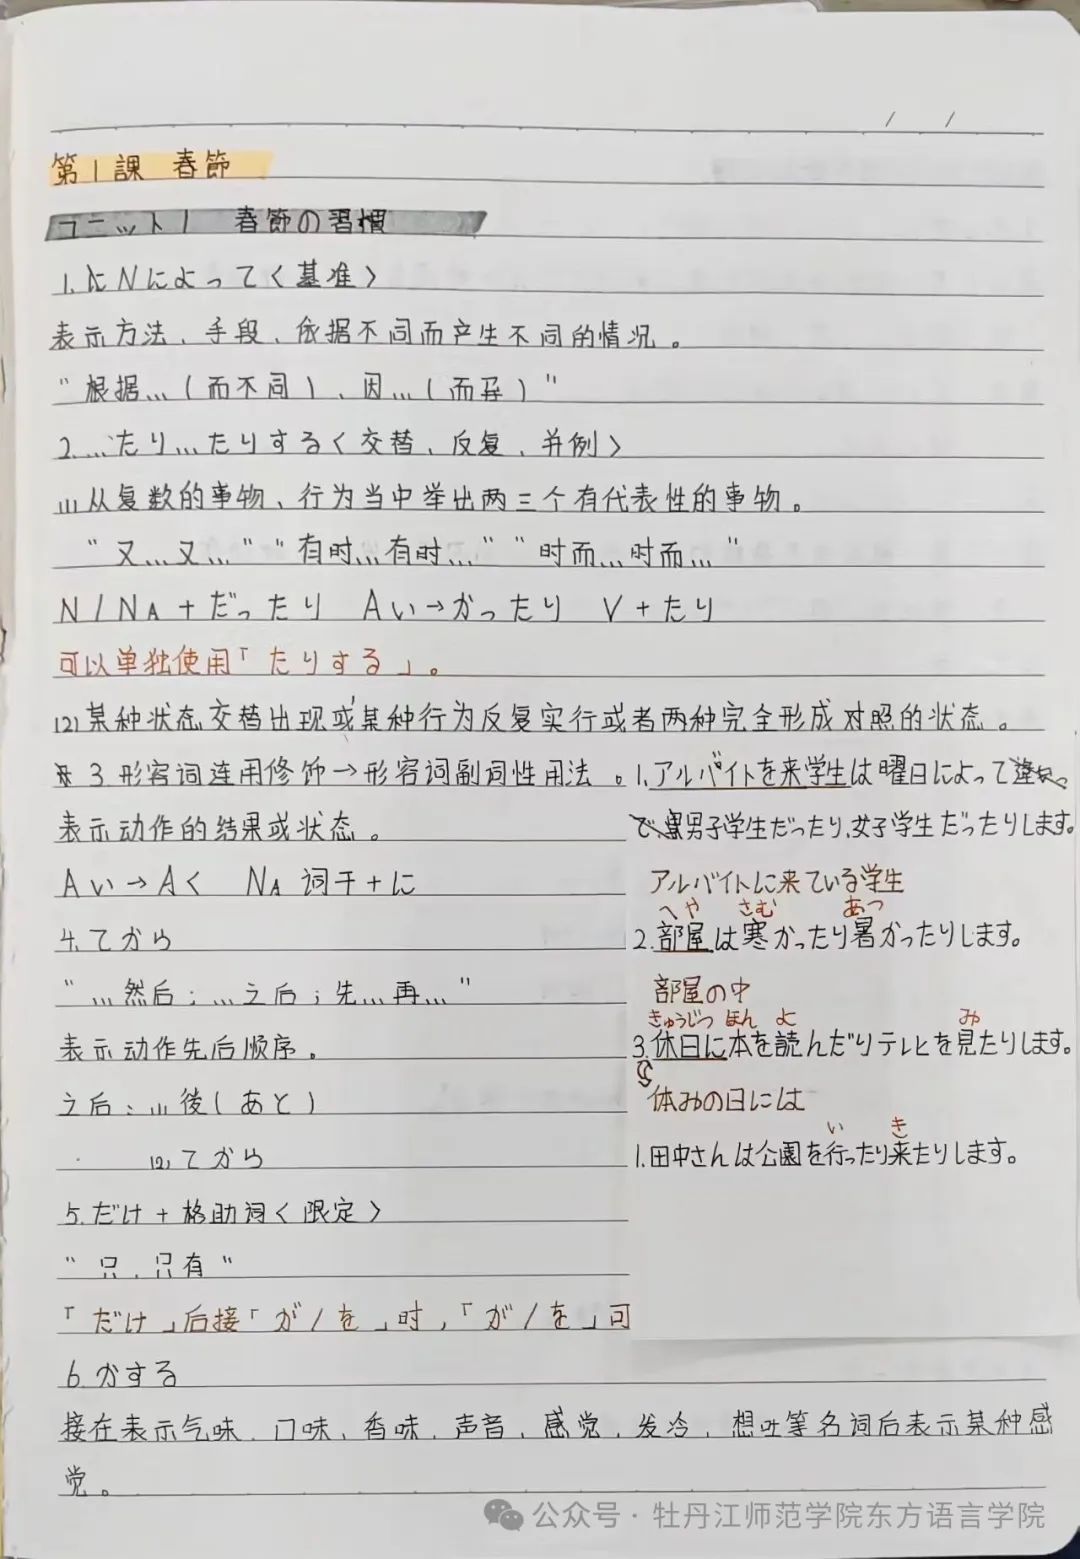 / /
第1課 春節
ユニット1 春節の習慣
1. にNによって〈基准〉
表示方法、手段、依据不同而产生不同的情况。
"根据…(而不同)、因…(而异)"
2.…たり…たりする〈交替、反复、并例〉
(1)从复数的事物、行为当中举出两三个有代表性的事物。
"又…又…" "有时…有时…" "时而…时而…"
N/NA+だったり Aい→かったり V+たり
可以单独使用「たりする」。
(2)某种状态交替出现或某种行为反复实行或者两种完全形成对照的状态。
3.形容词连用修饰→形容词副词性用法。
表示动作的结果或状态。
Aい→Aく NA词干+に
4.てから
"…然后;…之后;先…再…"
表示动作先后顺序。
之后:(1)後(あと)
(2)てから
5.だけ+格助词〈限定〉
"只、只有"
「だけ」后接「が/を」时,「が/を」可
6.がする
接在表示气味、口味、香味、声音、感觉、发冷、想吐等名词后表示某种感
觉。
1.アルバイトを来学生は曜日によって
男子学生だったり、女子学生だったりします。
アルバイトに来ている学生
へや さむ あつ
2.部屋は寒かったり暑かったりします。
部屋の中
きゅうじつ ほん よ み
3.休日に本を読んだりテレビを見たりします。
休みの日には
い き
1.田中さんは公園を行ったり来たりします。
公众号·牡丹江师范学院东方语言学院